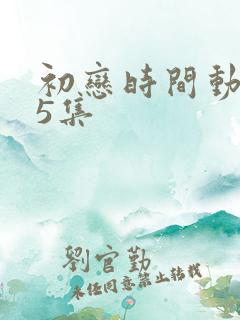 初戀時間動
5集
劉官勤
未经同意禁止转载